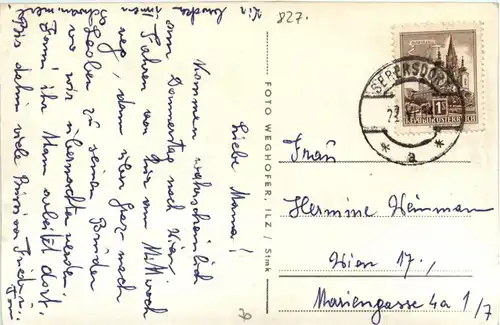 827.
Liebe Mama!
Kommen wahrscheinlich
am Donnerstag nach Wien.
Fahren von hier am Mittwoch
weg, dann über Graz nach
Leoben zu seinem Bruder
wo wir übernachten werden.
Franz, ihr Mann arbeitet dort.
Bis dahin viele Bussi von
FOTO WEGHOFER, ILZ / Stmk
SEBERSDORF
a
REPUBLIK ÖSTERREICH
Frau
Hermine Weinmann
Wien 17.,
Mariengasse 4a 1/7